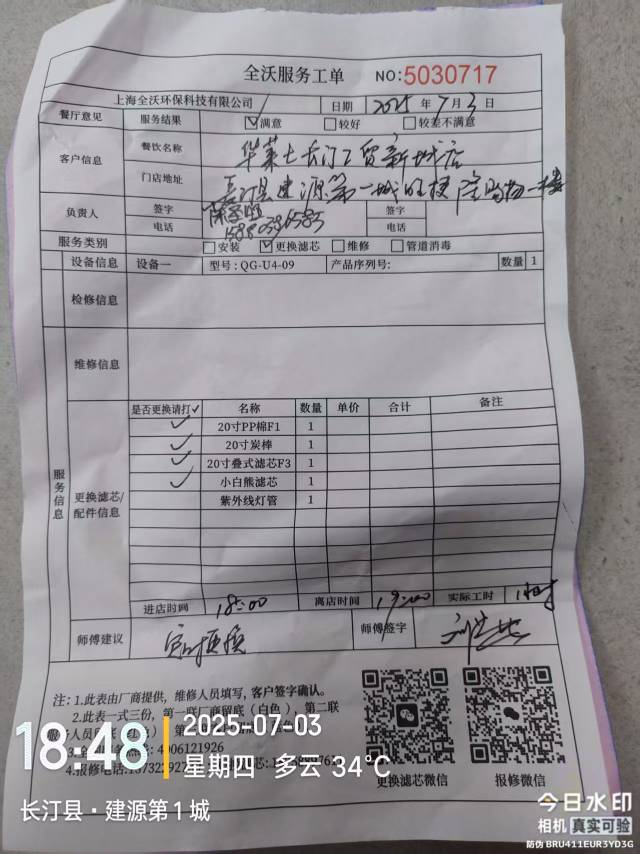 全沃服务工单 NO:5030717
上海全沃环保科技有限公司 日期 2025 年 7 月 3 日
餐厅意见 服务结果 ☑满意 □较好 □较差不满意
客户信息 餐饮名称 华莱士长汀工贸新城店
门店地址 长汀县建源第一城 购物一楼
负责人 签字 签字
电话 电话
服务类别 □安装 ☑更换滤芯 □维修 □管道消毒
设备信息 设备一 型号: QG-U4-09 产品序列号: 数量 1
检修信息
维修信息
服务信息
更换滤芯/配件信息
是否更换请打✓ 名称 数量 单价 合计 备注
✓ 20寸PP棉F1 1
✓ 20寸炭棒 1
✓ 20寸叠式滤芯F3 1
✓ 小白熊滤芯 1
紫外线灯管 1
进店时间 18:00 离店时间 19:00 实际工时 1小时
师傅建议 定时更换 师傅签字
注: 1.此表由厂商提供，维修人员填写，客户签字确认。
2.此表一式三份，第一联厂商留底（白色），第二联
4006121926
4.报修电话:
更换滤芯微信 报修微信
18:48 2025-07-03
星期四 多云 34°C
长汀县·建源第1城
今日水印
相机 真实可验
防伪 BRU411EUR3YD3G